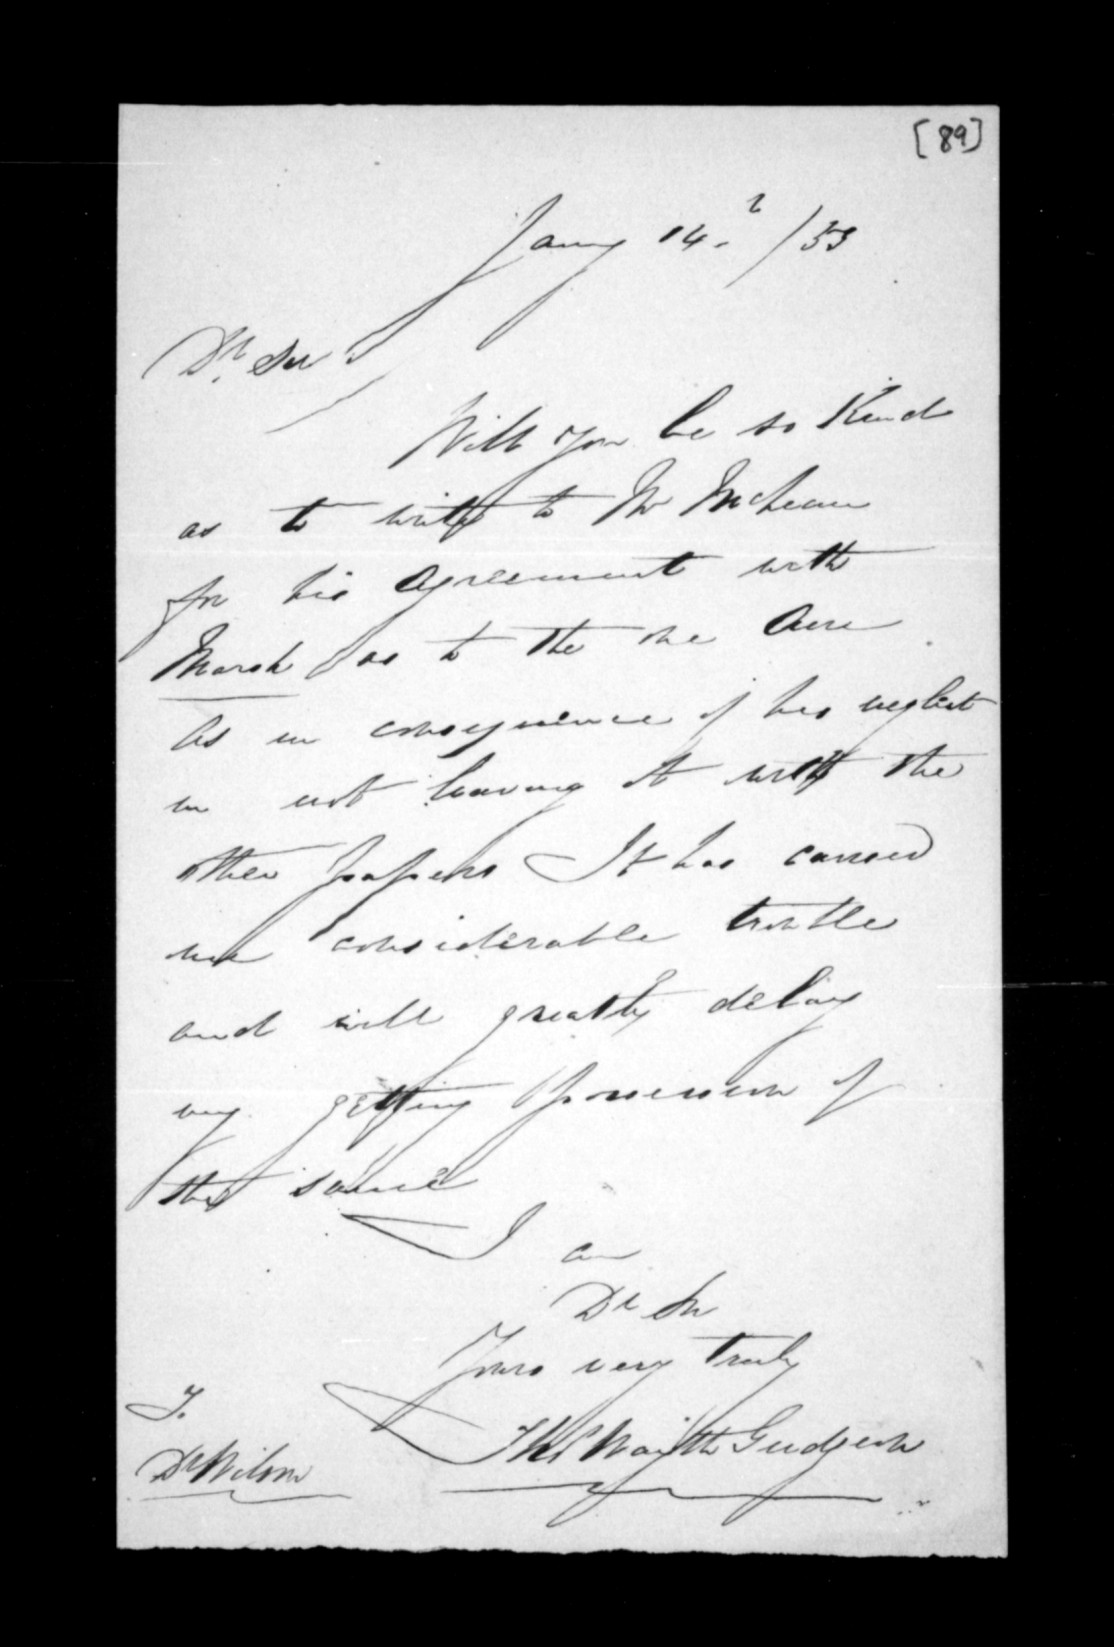 [89]
Jany 14.h /53
Dr. Sir
Will you be so Kind
as to write to Mr McLean
for his Agreement with
Marsh as to the one Acre
As in consequence of his neglect
in not leaving it with the
other papers It has caused
me considerable trouble
and will greatly delay
my getting possession of
the same
I am
Dr Sir
Yours very truly
Thos Waith Gudgeon
T.
Dr Wilson